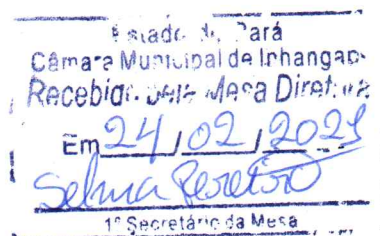 Estado do Pará
Câmara Municipal de Inhangap
Recebido pela Mesa Diretiva
Em 24/02/2021
Selma
1º Secretário da Mesa